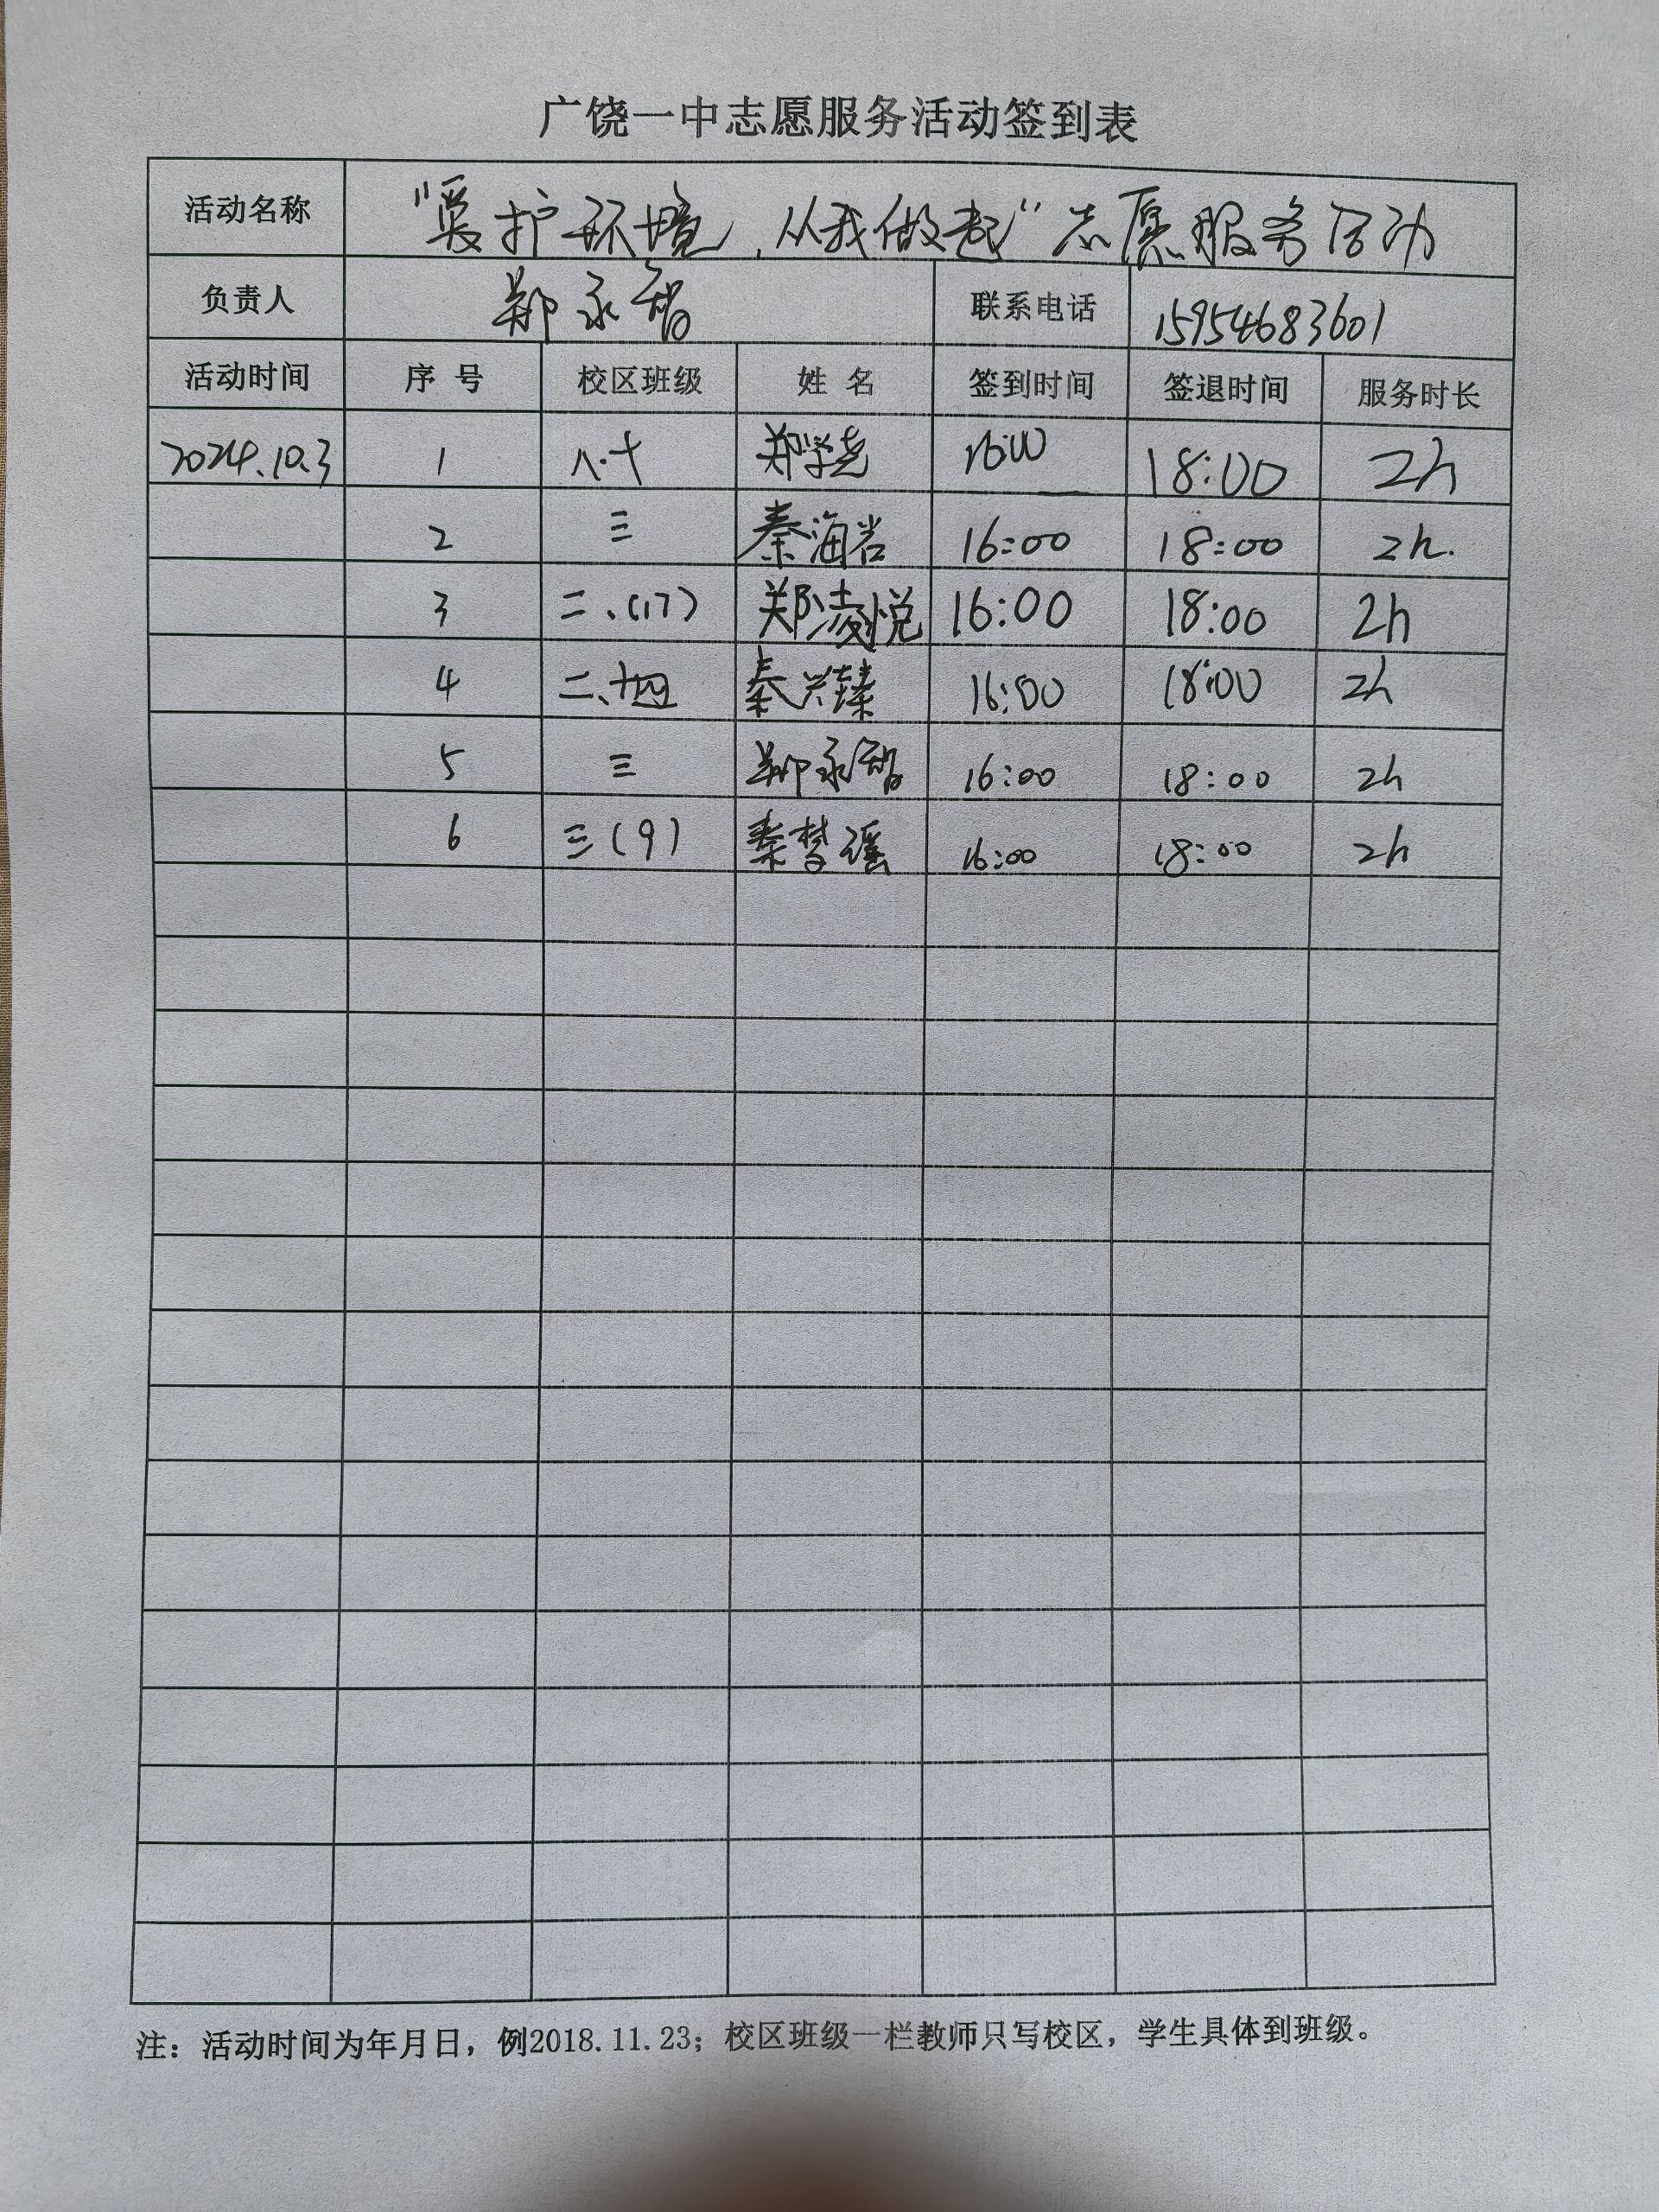 广饶一中志愿服务活动签到表
活动名称 "爱护环境，从我做起"志愿服务活动
负责人 郑永智 联系电话 15954683601
活动时间 序号 校区班级 姓名 签到时间 签退时间 服务时长
2024.10.3 1 八.十 郑学尧 16:00 18:00 2h
2 三 秦海岩 16:00 18:00 2h.
3 二、(17) 郑凌悦 16:00 18:00 2h
4 二、十四 秦兴臻 16:00 18:00 2h
5 三 郑永智 16:00 18:00 2h
6 三(9) 秦梦瑶 16:00 18:00 2h
注：活动时间为年月日，例2018.11.23；校区班级一栏教师只写校区，学生具体到班级。